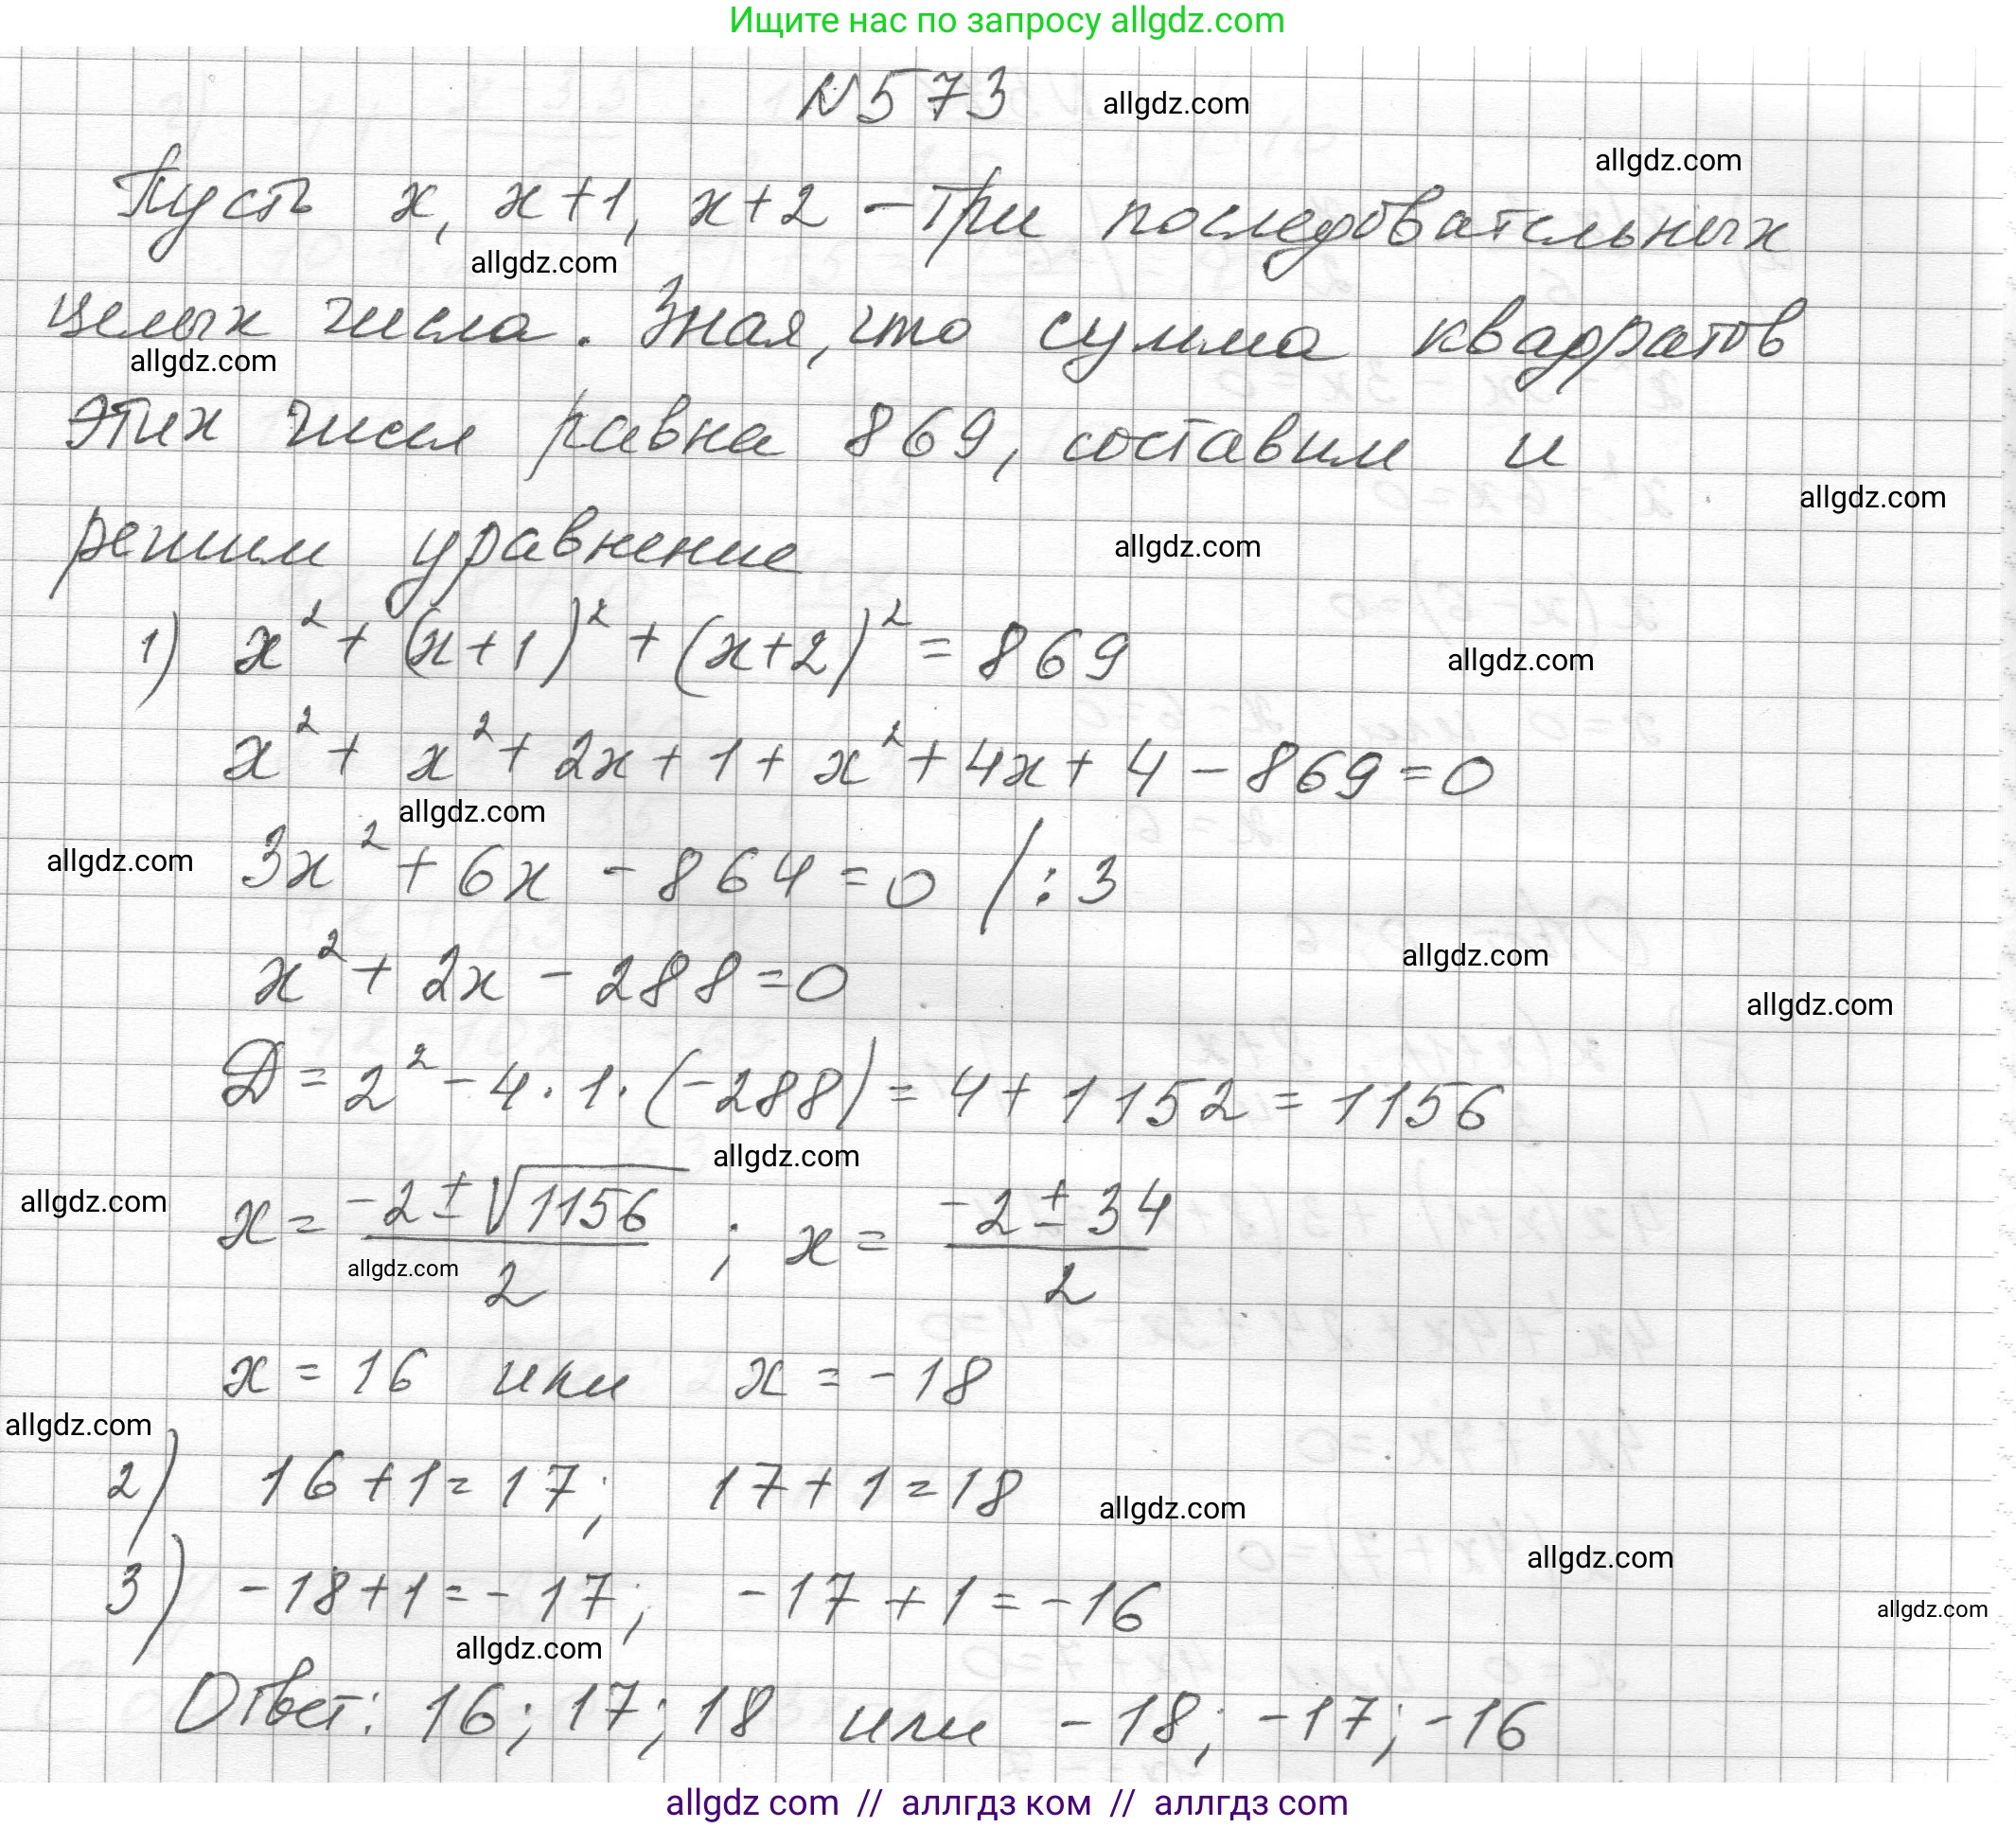 Ищите нас по запросу allgdz.com
N573 allgdz.com
allgdz.com
Пусть x, x+1, x+2 – три последовательных
allgdz.com
целых числа. Зная, что сумма квадратов
allgdz.com
этих чисел равна 869, составим и
allgdz.com
решим уравнение allgdz.com
1) x² + (x+1)² + (x+2)² = 869 allgdz.com
x² + x² + 2x + 1 + x² + 4x + 4 – 869 = 0
allgdz.com
allgdz.com 3x² + 6x – 864 = 0 /:3
allgdz.com
x² + 2x – 288 = 0 allgdz.com
D = 2² – 4·1·(–288) = 4 + 1152 = 1156
allgdz.com
allgdz.com x = (–2±√1156)/2 ; x = (–2±34)/2
allgdz.com
x = 16 или x = –18
allgdz.com
2) 16+1=17; 17+1=18 allgdz.com
allgdz.com
3) –18+1=–17; –17+1=–16 allgdz.com
allgdz.com
Ответ: 16; 17; 18 или –18; –17; –16
allgdz com // аллгдз ком // аллгдз com